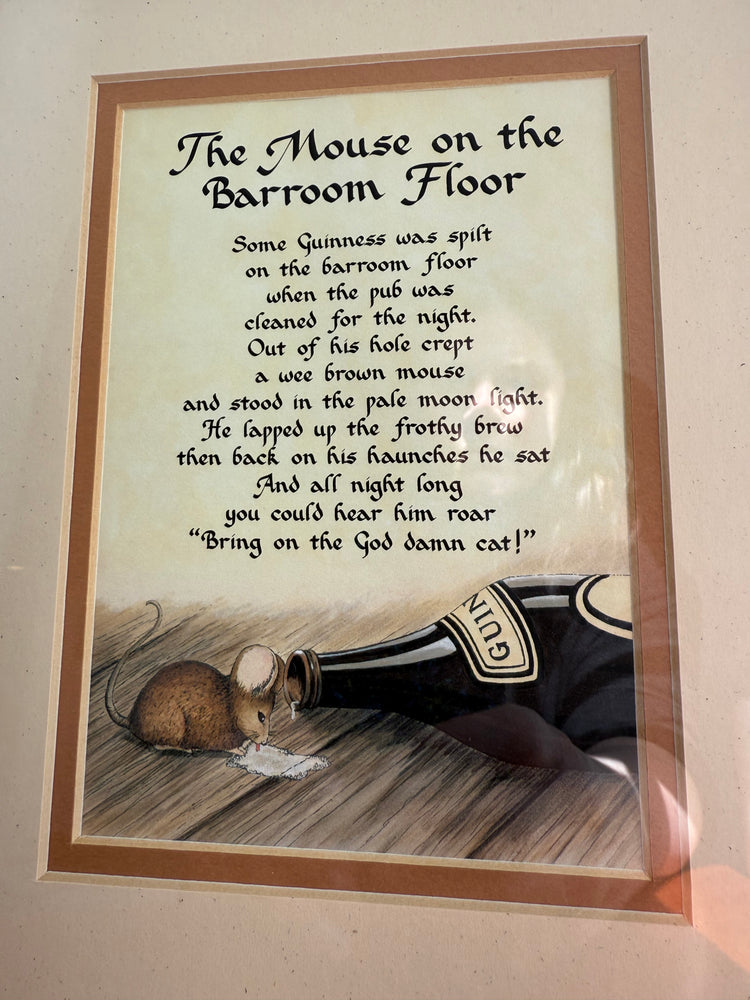 The Mouse on the
Barroom Floor
Some Guinness was spilt
on the barroom floor
when the pub was
cleaned for the night.
Out of his hole crept
a wee brown mouse
and stood in the pale moon light.
He lapped up the frothy brew
then back on his haunches he sat
And all night long
you could hear him roar
“Bring on the God damn cat!”
GUIN